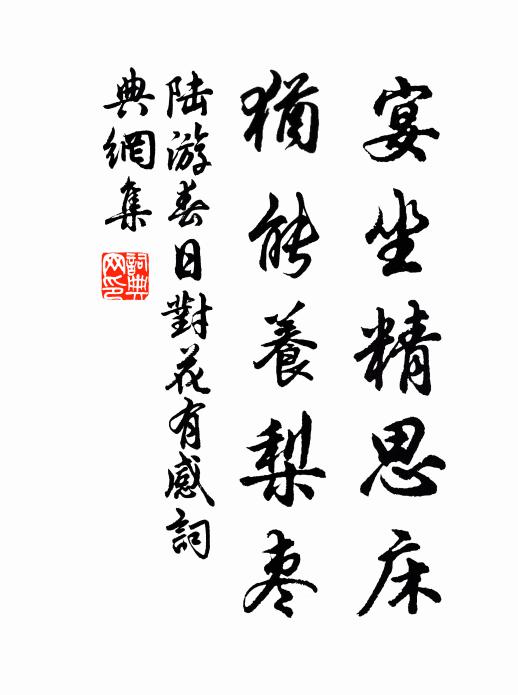 宴坐精思床
猶能養梨枣
陆游春日對花有感詞
典網集
詞典网印